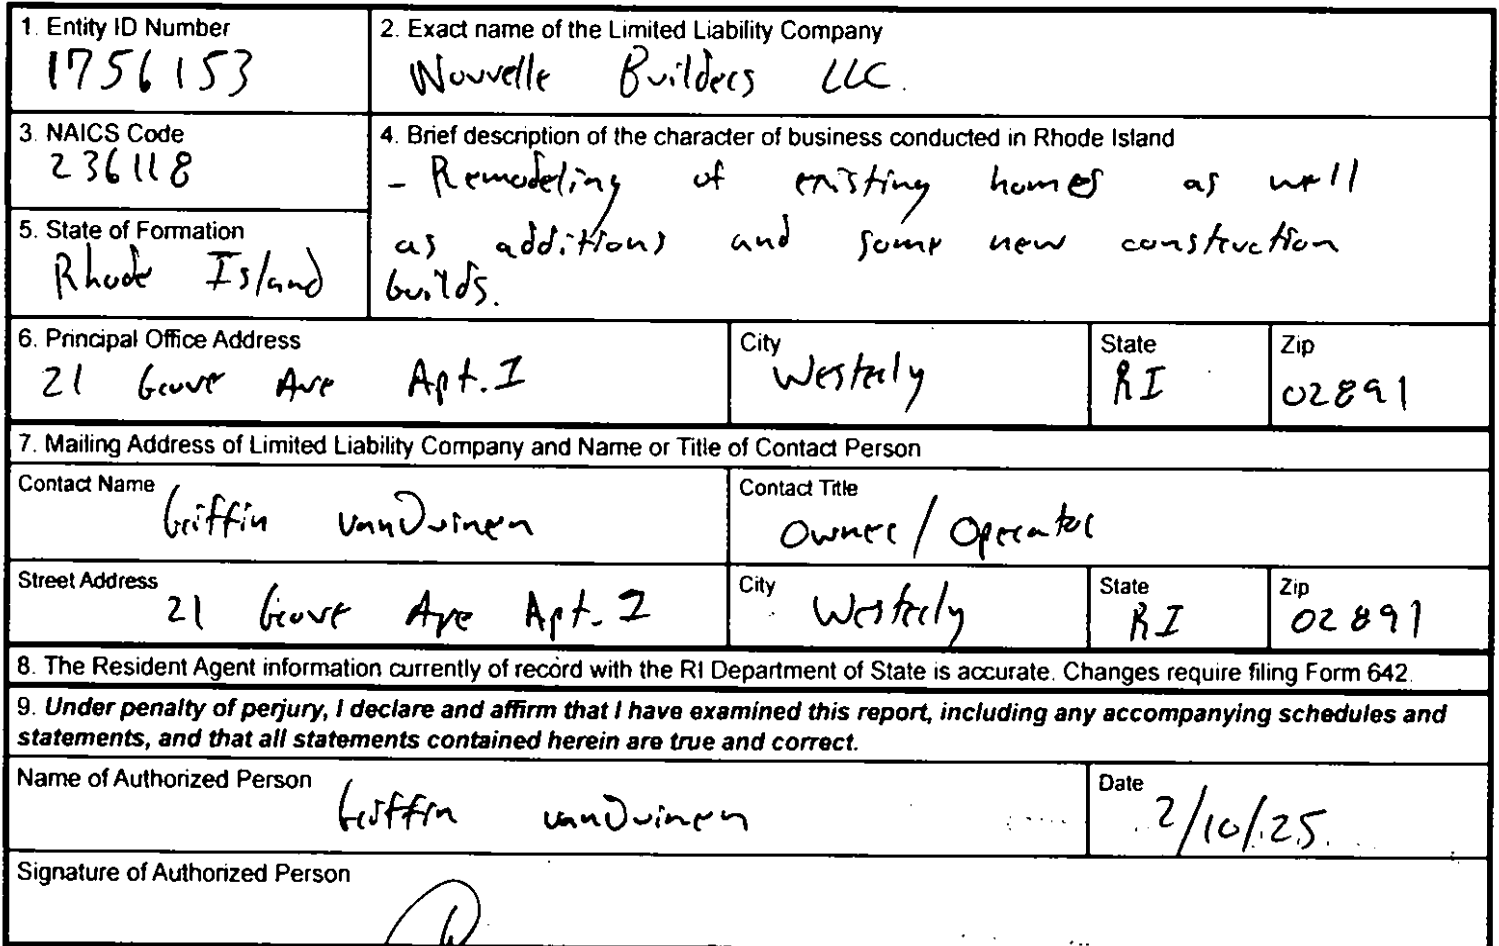 1. Entity ID Number
1756153
2. Exact name of the Limited Liability Company
Nouvelle Builders LLC.
3. NAICS Code
236118
4. Brief description of the character of business conducted in Rhode Island
- Remodeling of existing homes as well
as additions and some new construction
builds.
5. State of Formation
Rhode Island
6. Principal Office Address
21 Grove Ave Apt. I
City
Westerly
State
RI
Zip
02891
7. Mailing Address of Limited Liability Company and Name or Title of Contact Person
Contact Name
Griffin vanDuinen
Contact Title
Owner/Operator
Street Address
21 Grove Ave Apt. I
City
Westerly
State
RI
Zip
02891
8. The Resident Agent information currently of record with the RI Department of State is accurate. Changes require filing Form 642.
9. Under penalty of perjury, I declare and affirm that I have examined this report, including any accompanying schedules and
statements, and that all statements contained herein are true and correct.
Name of Authorized Person
Griffin vanDuinen
Date
2/10/25
Signature of Authorized Person